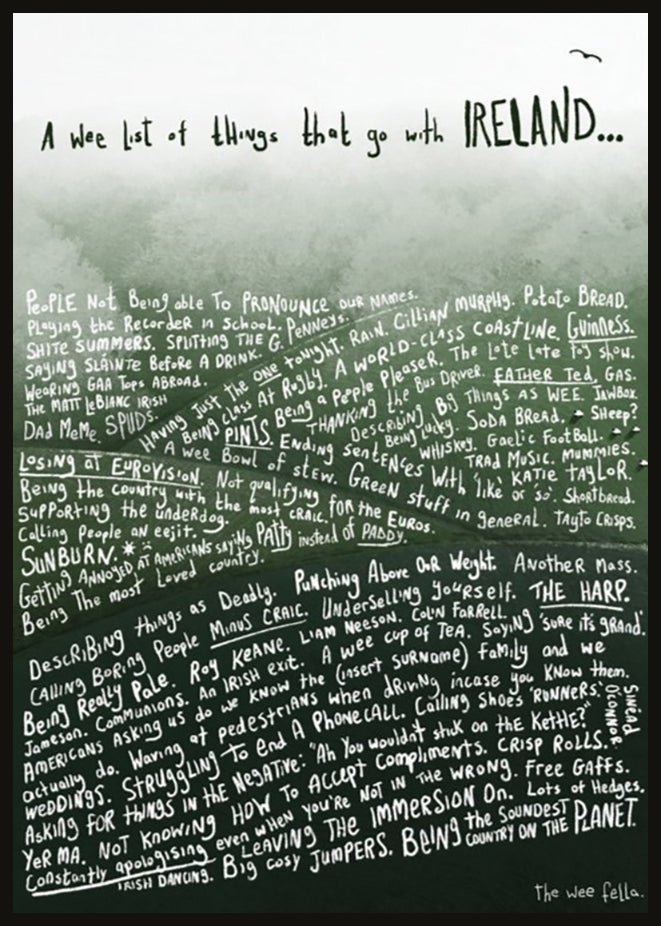 A wee list of things that go with IRELAND...
PEOPLE Not Being able To PRONOUNCE OUR NAMES.
Playing the RecordeR in School. PENNEYS.
SHITE SUMMERS. SPLITTING THE G.
SAYING SLÁINTE BEFORE A DRINK.
WeaRing GAA Tops ABROAD.
THE MATT LeBLANC IRISH
DAD MeMe. SPUDS.
HAVING JUST THE ONE TONIGHT. RAIN. Cillian MURPHY. Potato BREAD.
A BeiNG CLASS AT RUGBY. A WORLD-CLASS COASTLINE. Guinness.
PINTS. Being a People PleaseR. The Late Late Toy Show.
THANKING the Bus DRIVER. FATHER Ted. GAS.
DESCRIBING BIG THINGS AS WEE. JAWBOX.
Being Lucky. SODA BREAD. SHeep?
WHISKEY. Gaelic FootBall.
TRAD MUSIC. MUMMIES.
A wee Bowl of stew. Ending sentences With 'like' or 'so'. KATIE TAYLOR.
GREEN stuff in general. Shortbread.
TayTo CRisps.
LOSING AT EUROVISION. Not qualifying for the EUROS.
Being the country with the most CRAIC.
SUPPORTING the underdog.
Calling People an eejit.
SUNBURN.
Getting ANNOYED AT AMERICANS SAYING PATTY instead of PADDY.
Being The most Loved country.
DESCRIBING things as Deadly. PUNCHING Above OUR Weight. AnotheR Mass.
CALLING BORING People MINUS CRAIC. UNDERSELLING yourself. THE HARP.
Being Really Pale. Roy KEANE. LIAM NeesoN. COLIN FARRELL. Saying 'sure its gRaNd'.
Jameson. Communions. An IRISH exit. A wee cup of TeA.
AMERICANS Asking us do we know the (insert surname) family and we
actually do. Waving at pedestrians when dRiving incase you KNOW them.
WeDDINGS. STRUGGLING To end A PhoneCALL. Calling Shoes 'RUNNERS'.
SINEAD O'CONNOR.
Asking FOR things IN the Negative: "Ah You wouldn't stick on the Kettle?"
YeR MA. NOT KNOWING HOW To Accept Compliments. CRISP ROLLS.
Constantly apologising even when you're NOT IN THE WRONG. Free GAFFS.
IRISH DANCING. LEAVING THE IMMERSION ON. Lots of Hedges.
Big cosy JUMPERS. BEING the SOUNDEST COUNTRY ON THE PLANET.
The wee fella.